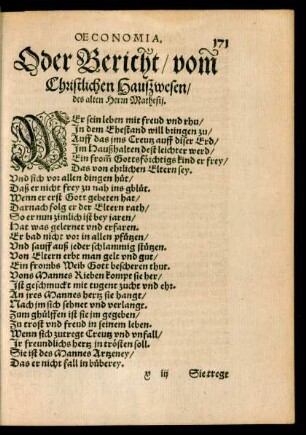 OECONOMIA,
171
Oder Bericht / vom̃
Christlichen Haußwesen /
des alten Herrn Mathesij.
WEr sein leben mit freud vnd rhu /
In dem Ehestand will bringen zu /
Auff das jms Creutz auff diser Erd /
Im Haußhalten dest leichter werd /
Ein from̃ Gottsförchtigs kind er frey /
Das von ehrlichen Eltern sey.
Vnd sich vor allen dingen hüt /
Daß er nicht frey zu nah ins glüt.
Wenn er erst Gott gebeten hat /
Darnach folg er der Eltern rath /
So er nun zimlich ist bey jaren /
Hat was gelernet vnd erfaren.
Er bad nicht vor in allen pfützen /
Vnd sauff auß jeder schlammig stützen.
Von Eltern erbt man gelt vnd gut /
Ein frombs Weib Gott bescheren thut.
Vons Mannes Rieben kompt sie her /
Ist geschmuckt mit tugent zucht vnd eht.
An jres Mannes hertz sie hangt /
Nach jm sich sehnet vnd verlangt.
Zum ghülffen ist sie jm gegeben /
Zu trost vnd freud in seinem leben.
Wenn sich zutregt Creutz vnd vnfall /
Ir freundlichs hertz in trösten soll.
Sie ist des Mannes Artzeney /
Das er nicht fall in büberey.
y iij Sie tregt